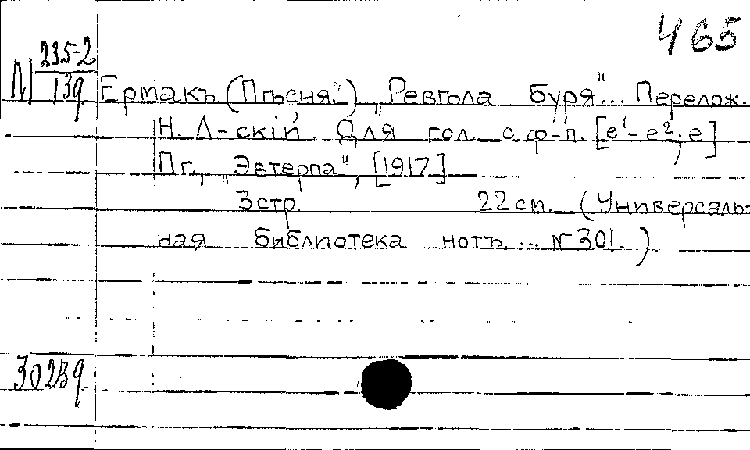 465
Л 235-2
139
Ермакъ (Пѣсня.") „Ревѣла буря"... Перелож.
Н. Л-скій. Для гол. с ф-п. [e¹-e²; e]
Пг., „Эвтерпа", [1917]
3 стр. 22 сm. (Универсаль-
ная библиотека нотъ... № 301.)